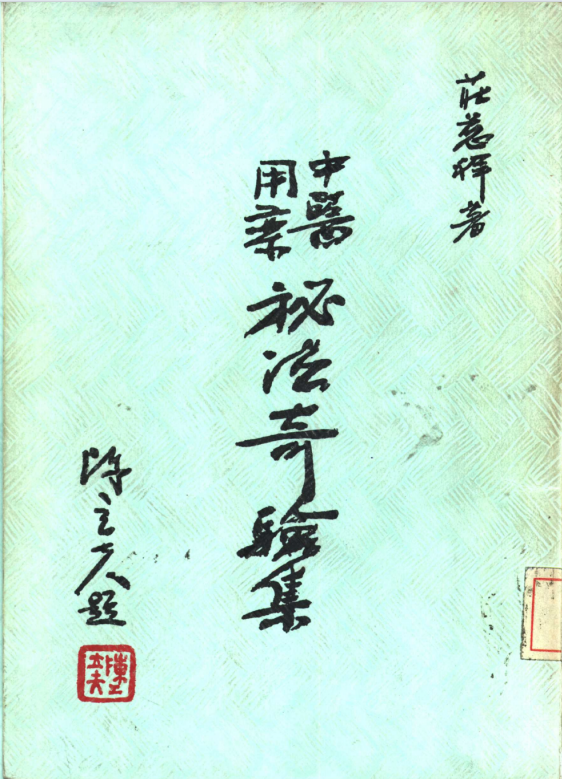 莊慈祥著
中醫
用藥
祕法奇驗集
陳立夫題
陳立夫